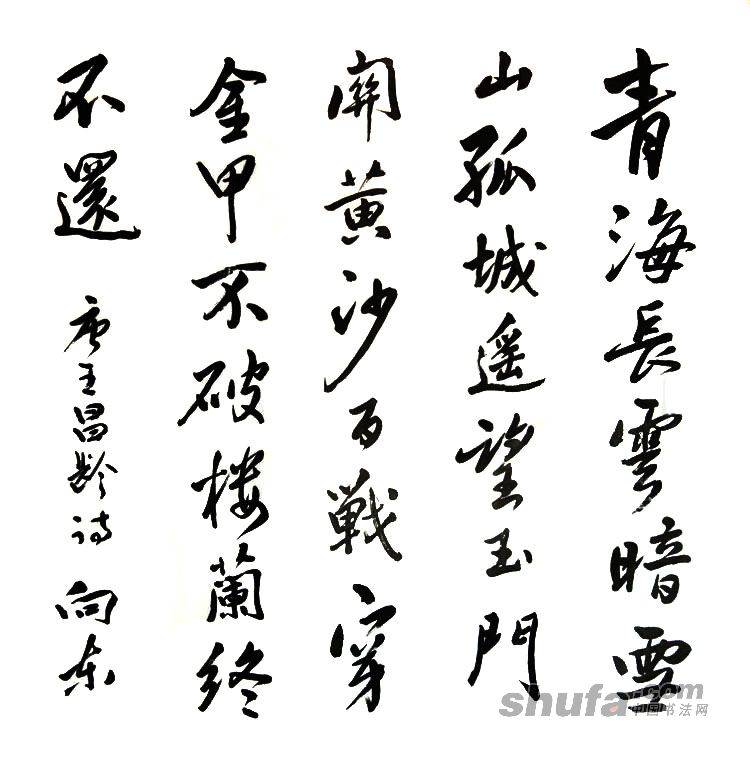 青海長雲暗雪
山孤城遥望玉門
關黄沙百戰穿
金甲不破楼蘭終
不還 唐王昌齡诗 向东
shufa.com
中国书法网